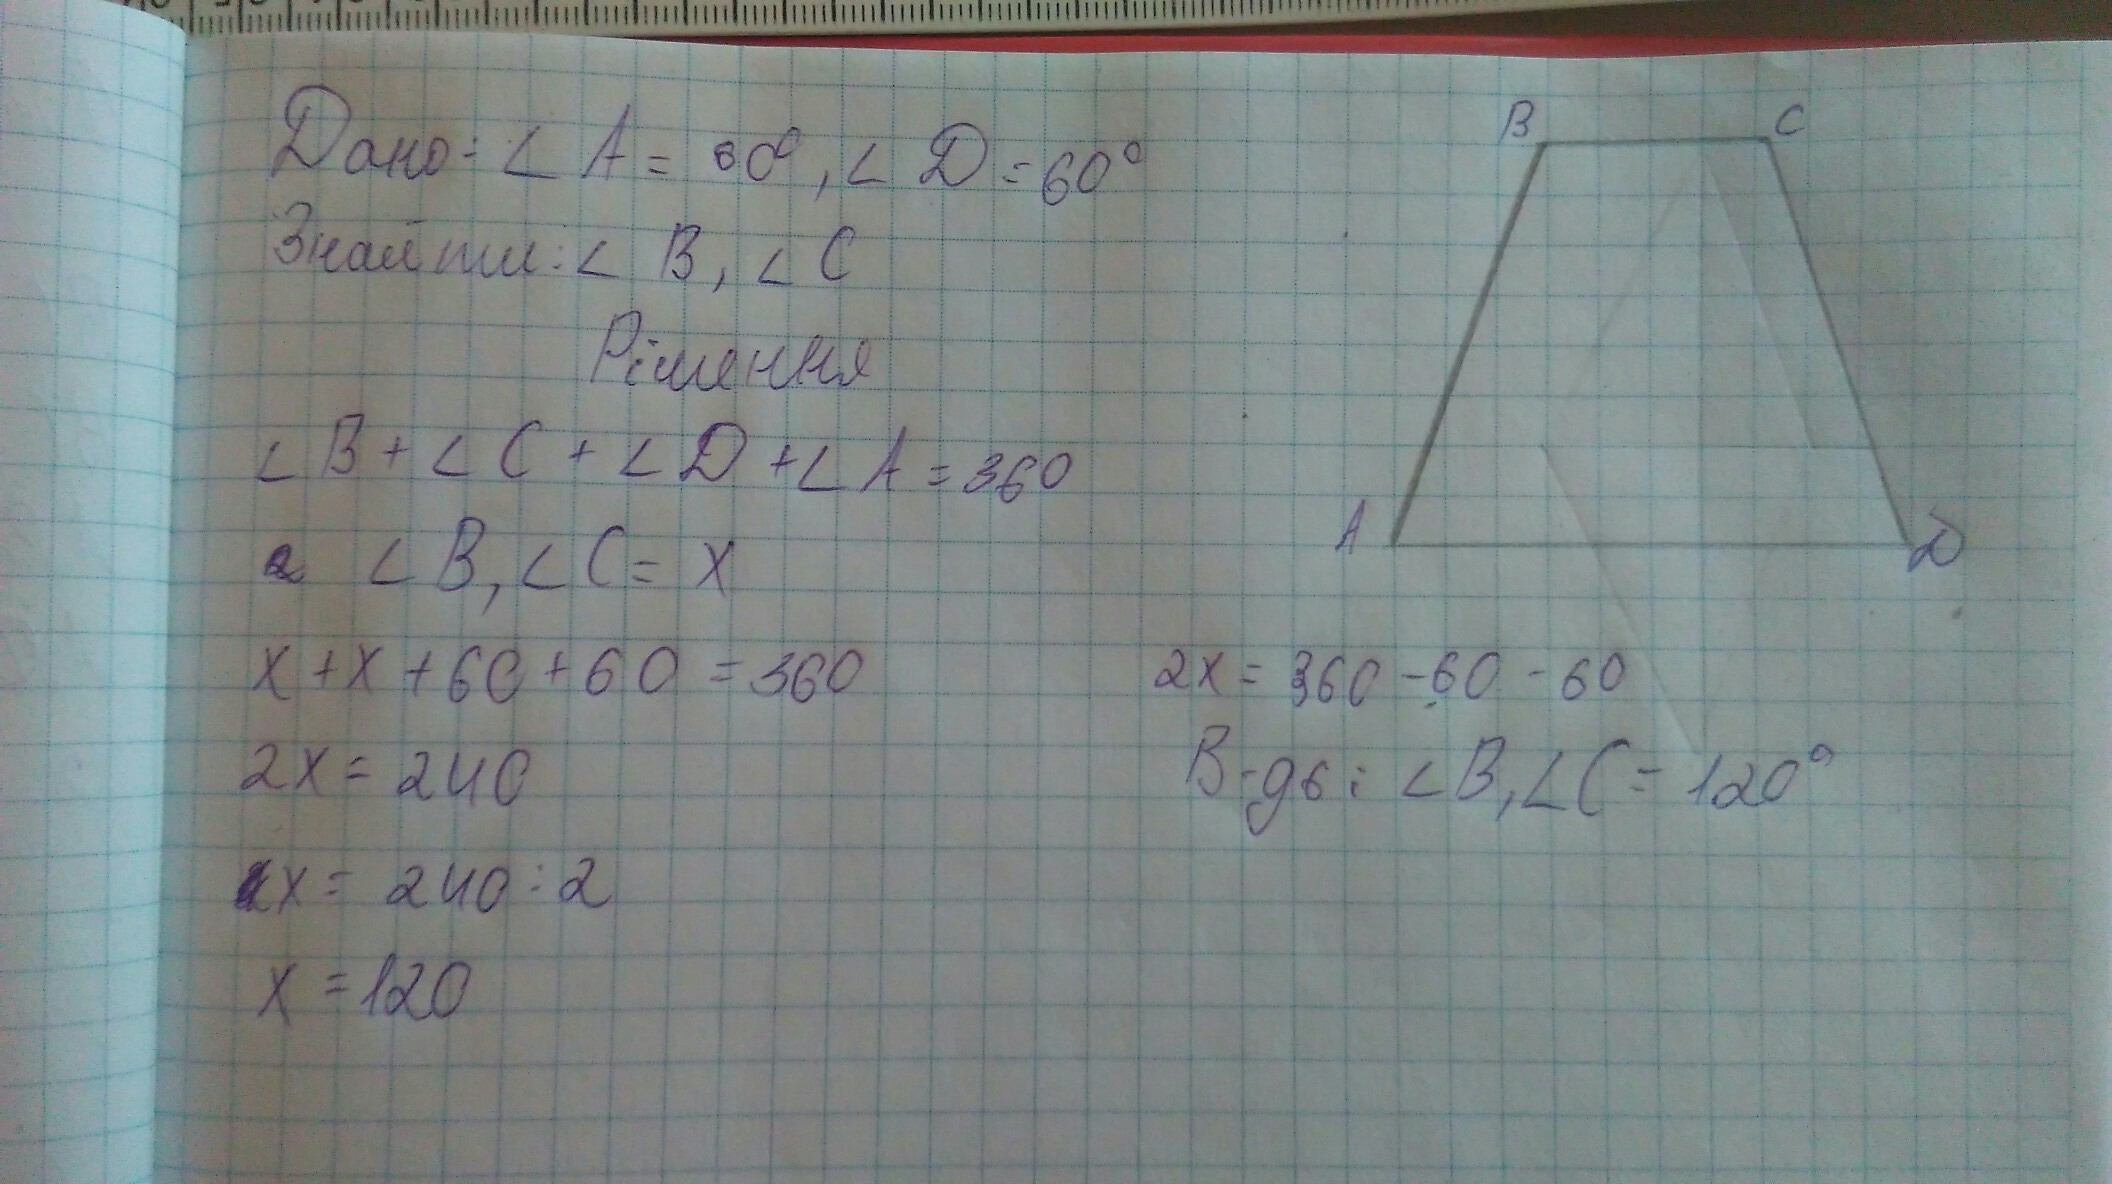 Дано: ∠ A = 60°, ∠ D = 60°
Знайти: ∠ B, ∠ C
Рішення
∠ B + ∠ C + ∠ D + ∠ A = 360
∠ B, ∠ C = x
x + x + 60 + 60 = 360
2x = 240
x = 240 : 2
x = 120
B C
A D
2x = 360 - 60 - 60
В-дь: ∠B, ∠C = 120°